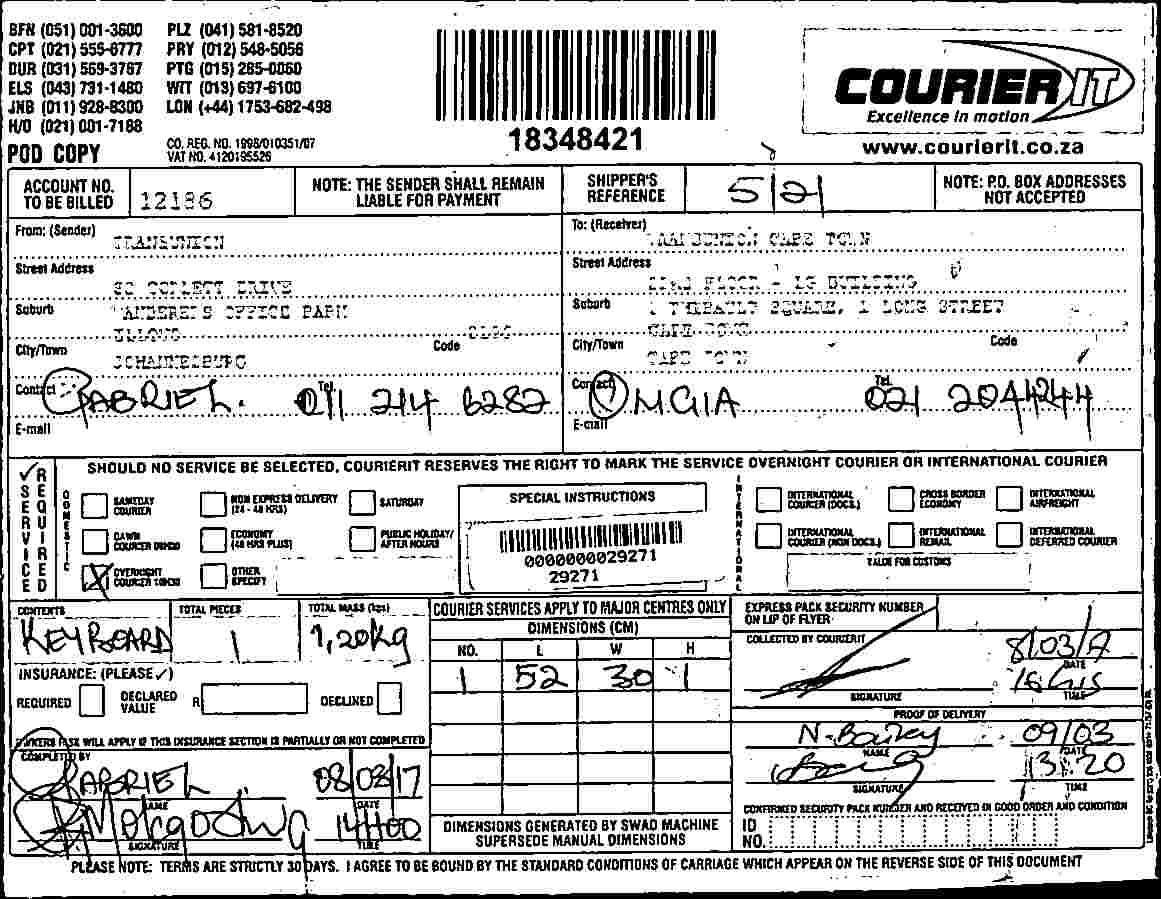 BFN (051) 001-3600 PLZ (041) 581-8520
CPT (021) 555-6777 PRY (012) 548-5056
DUR (031) 569-3767 PTG (015) 265-0060
ELS (043) 731-1480 WIT (013) 697-6100
JNB (011) 928-8300 LON (+44) 1753-682-498
H/O (021) 001-7188
POD COPY
CO. REG. NO. 1998/010351/07
VAT NO. 4120195526
18348421
COURIER IT
Excellence in motion
www.courierit.co.za
ACCOUNT NO. TO BE BILLED 12186
NOTE: THE SENDER SHALL REMAIN LIABLE FOR PAYMENT
SHIPPER'S REFERENCE 5121
NOTE: P.O. BOX ADDRESSES NOT ACCEPTED
From: (Sender) TRANSUNION
Street Address
Suburb OFFICE PARK
ILLOVO
City/Town JOHANNESBURG
Code
Contact GABRIEL. Tel. 011 214 6282
E-mail
To: (Receiver) TRANSUNION CAPE TOWN
Street Address FLOOR - LG BUILDING
Suburb 1 THIBAULT SQUARE, 1 LONG STREET
CAPE TOWN
City/Town CAPE TOWN
Code
Contact OMGIA Tel. 021 2044244
E-mail
SERVICE REQUIRED
SHOULD NO SERVICE BE SELECTED, COURIERIT RESERVES THE RIGHT TO MARK THE SERVICE OVERNIGHT COURIER OR INTERNATIONAL COURIER
DOMESTIC
SAMEDAY COURIER
NON EXPRESS DELIVERY (24 - 48 HRS)
SATURDAY
DAWN COURIER
ECONOMY (48 HRS PLUS)
PUBLIC HOLIDAY/ AFTER HOURS
OVERNIGHT COURIER
OTHER SPECIFY
SPECIAL INSTRUCTIONS
0000000029271
29271
INTERNATIONAL
INTERNATIONAL COURIER (DOCS.)
CROSS BORDER ECONOMY
INTERNATIONAL AIRFREIGHT
INTERNATIONAL COURIER (NON DOCS.)
INTERNATIONAL REMAIL
INTERNATIONAL DEFERRED COURIER
VALUE FOR CUSTOMS
CONTENTS KEYBOARD
TOTAL PIECES 1
TOTAL MASS (kgs) 1,20kg
INSURANCE: (PLEASE ✓)
REQUIRED
DECLARED VALUE R
DECLINED
WILL APPLY IF THIS INSURANCE SECTION IS PARTIALLY OR NOT COMPLETED
COMPLETED BY
GABRIEL 08/03/17
NAME DATE
14H00
SIGNATURE TIME
COURIER SERVICES APPLY TO MAJOR CENTRES ONLY
DIMENSIONS (CM)
NO. L W H
1 52 30 1
DIMENSIONS GENERATED BY SWAD MACHINE SUPERSEDE MANUAL DIMENSIONS
EXPRESS PACK SECURITY NUMBER ON LIP OF FLYER
COLLECTED BY COURIERIT
8/03/17
DATE
SIGNATURE TIME
PROOF OF DELIVERY
N. Bailey 09/03
NAME DATE
13:20
SIGNATURE TIME
CONFIRMED SECURITY PACK NUMBER AND RECEIVED IN GOOD ORDER AND CONDITION
ID NO.
PLEASE NOTE: TERMS ARE STRICTLY 30 DAYS. I AGREE TO BE BOUND BY THE STANDARD CONDITIONS OF CARRIAGE WHICH APPEAR ON THE REVERSE SIDE OF THIS DOCUMENT